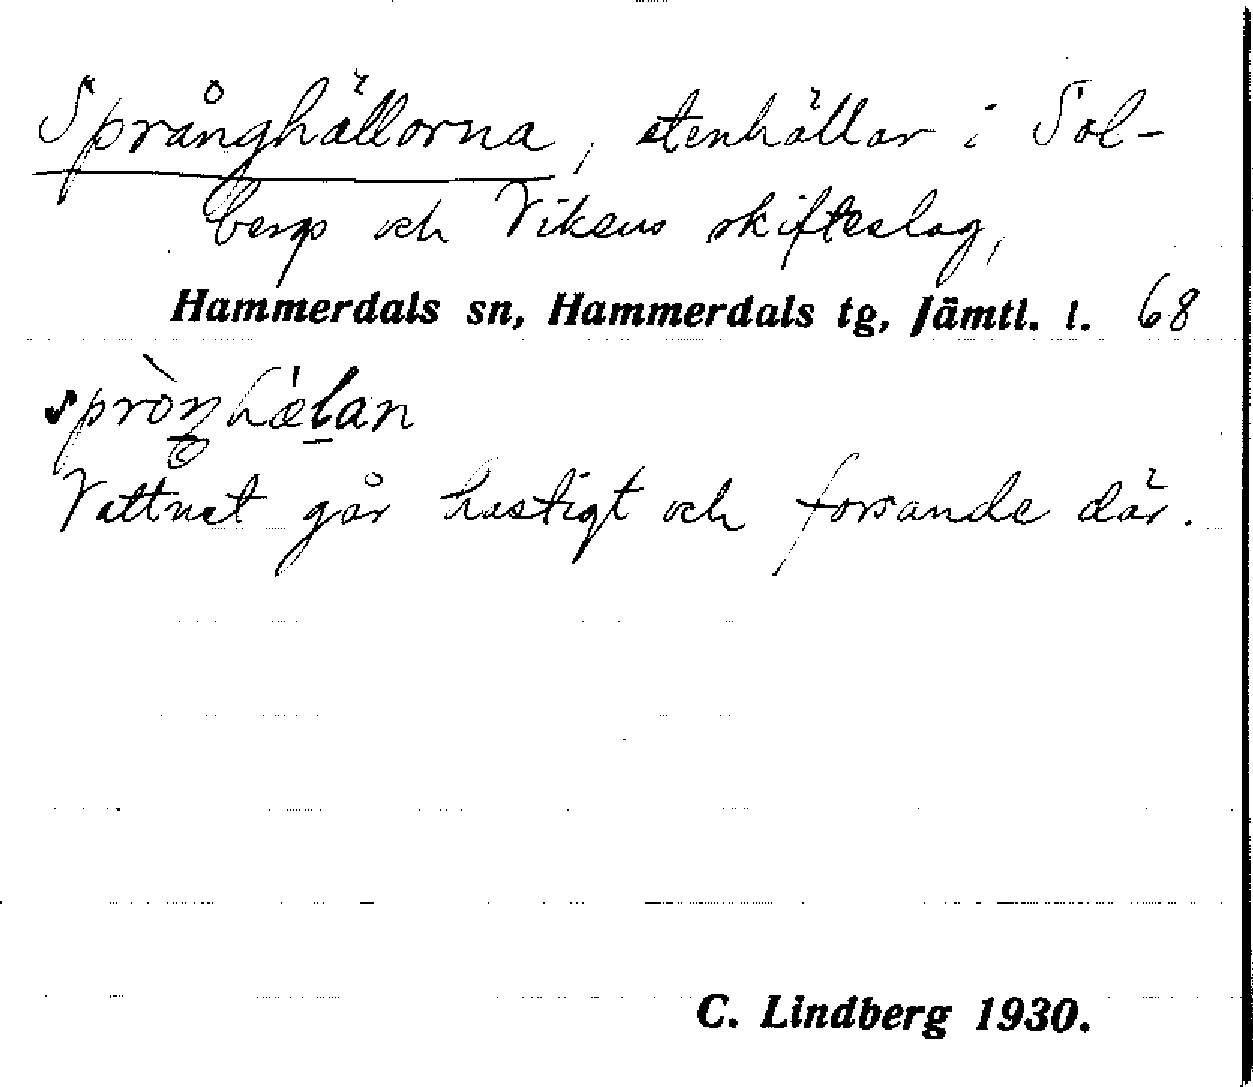 Språnghällorna, stenhällar i Sol-
bergs och Vikens skifteslag,
Hammerdals sn, Hammerdals tg, Jämtl. l. 68
Vattnet går hastigt och forsande där.
C. Lindberg 1930.